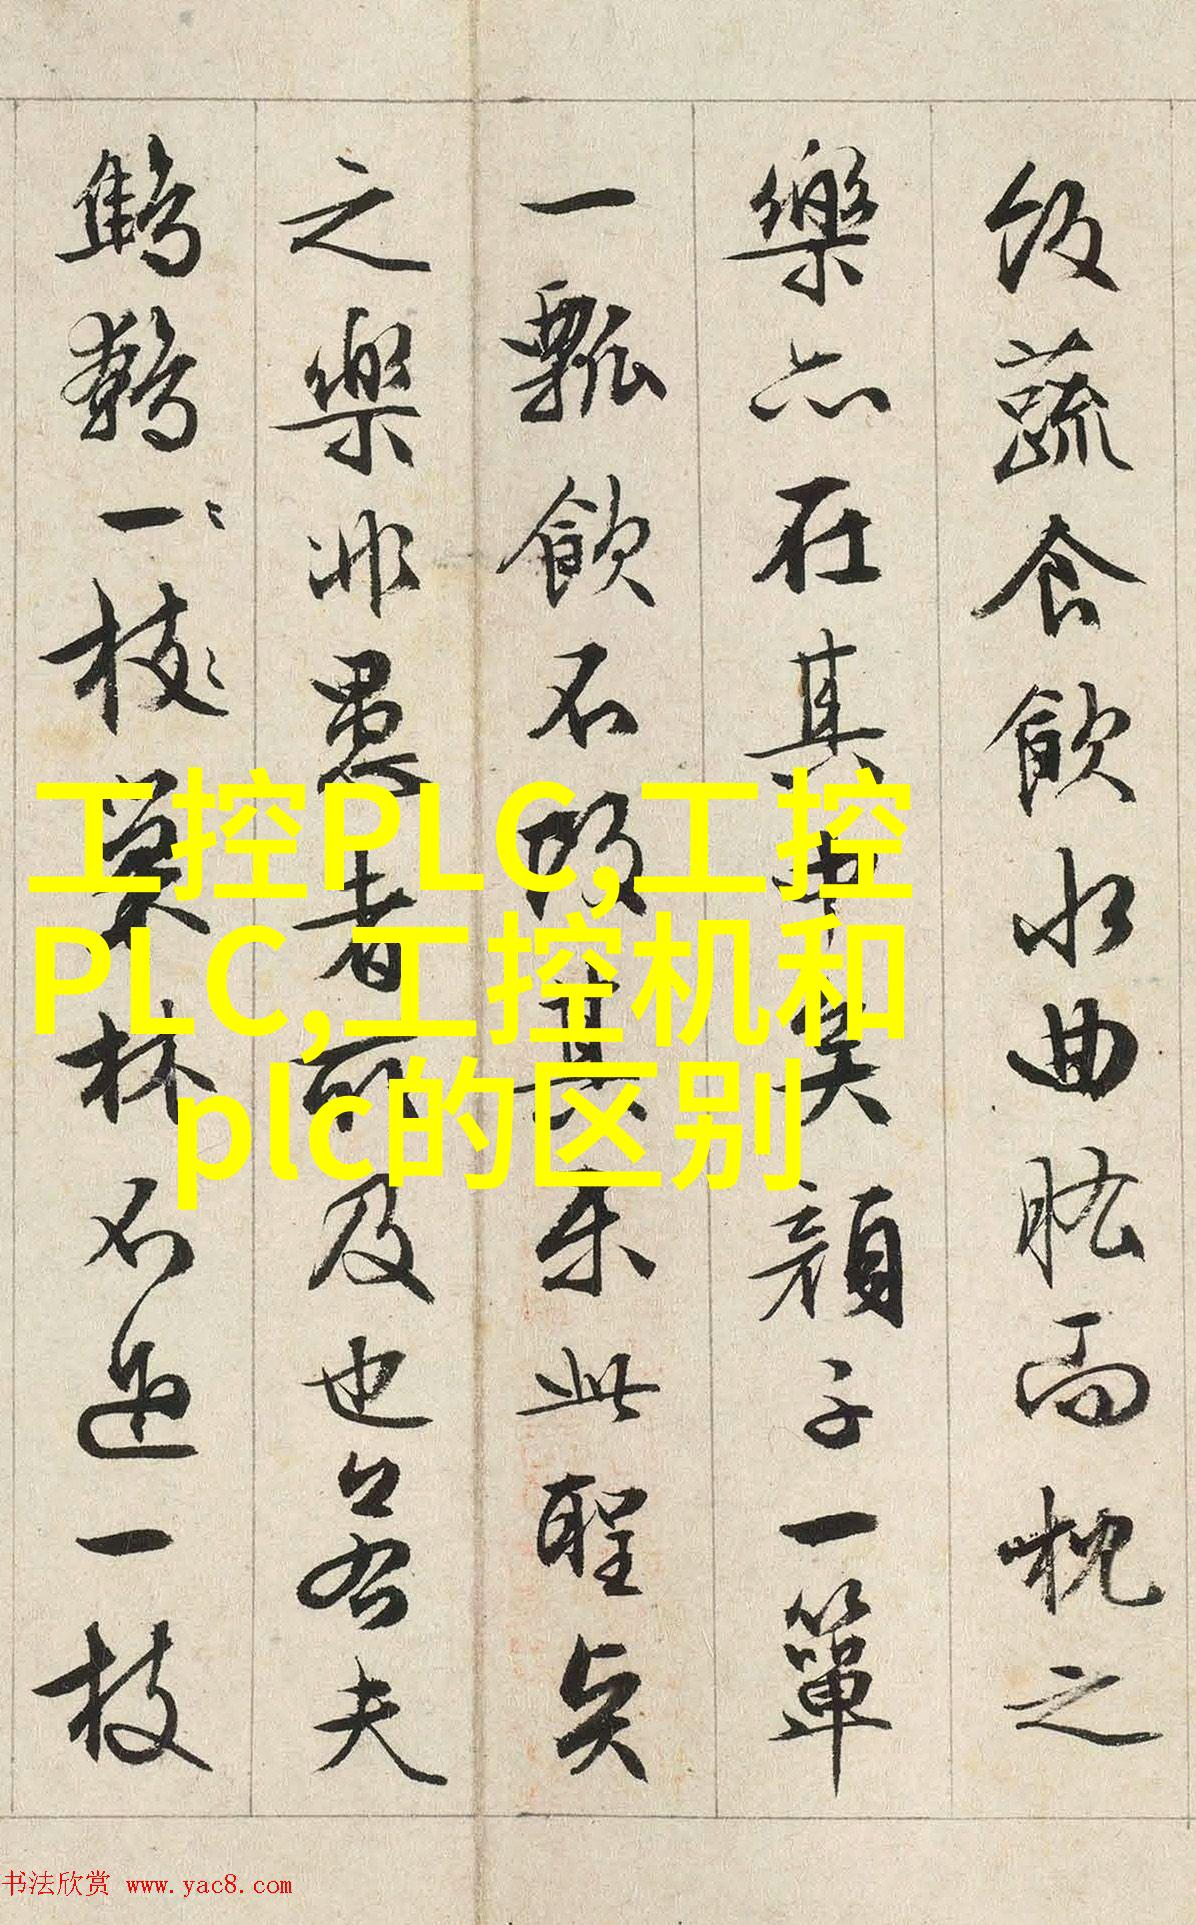 飯蔬食飲水曲肱而枕之
樂亦在其中矣顔子一簞
一瓢飲不改其樂此聖賢
之樂非愚者所及也若夫
鷦鷯一枝巢林不過一枝
工控PLC,工控
PLC,工控机和
plc的区别
书法欣赏 www.yac8.com